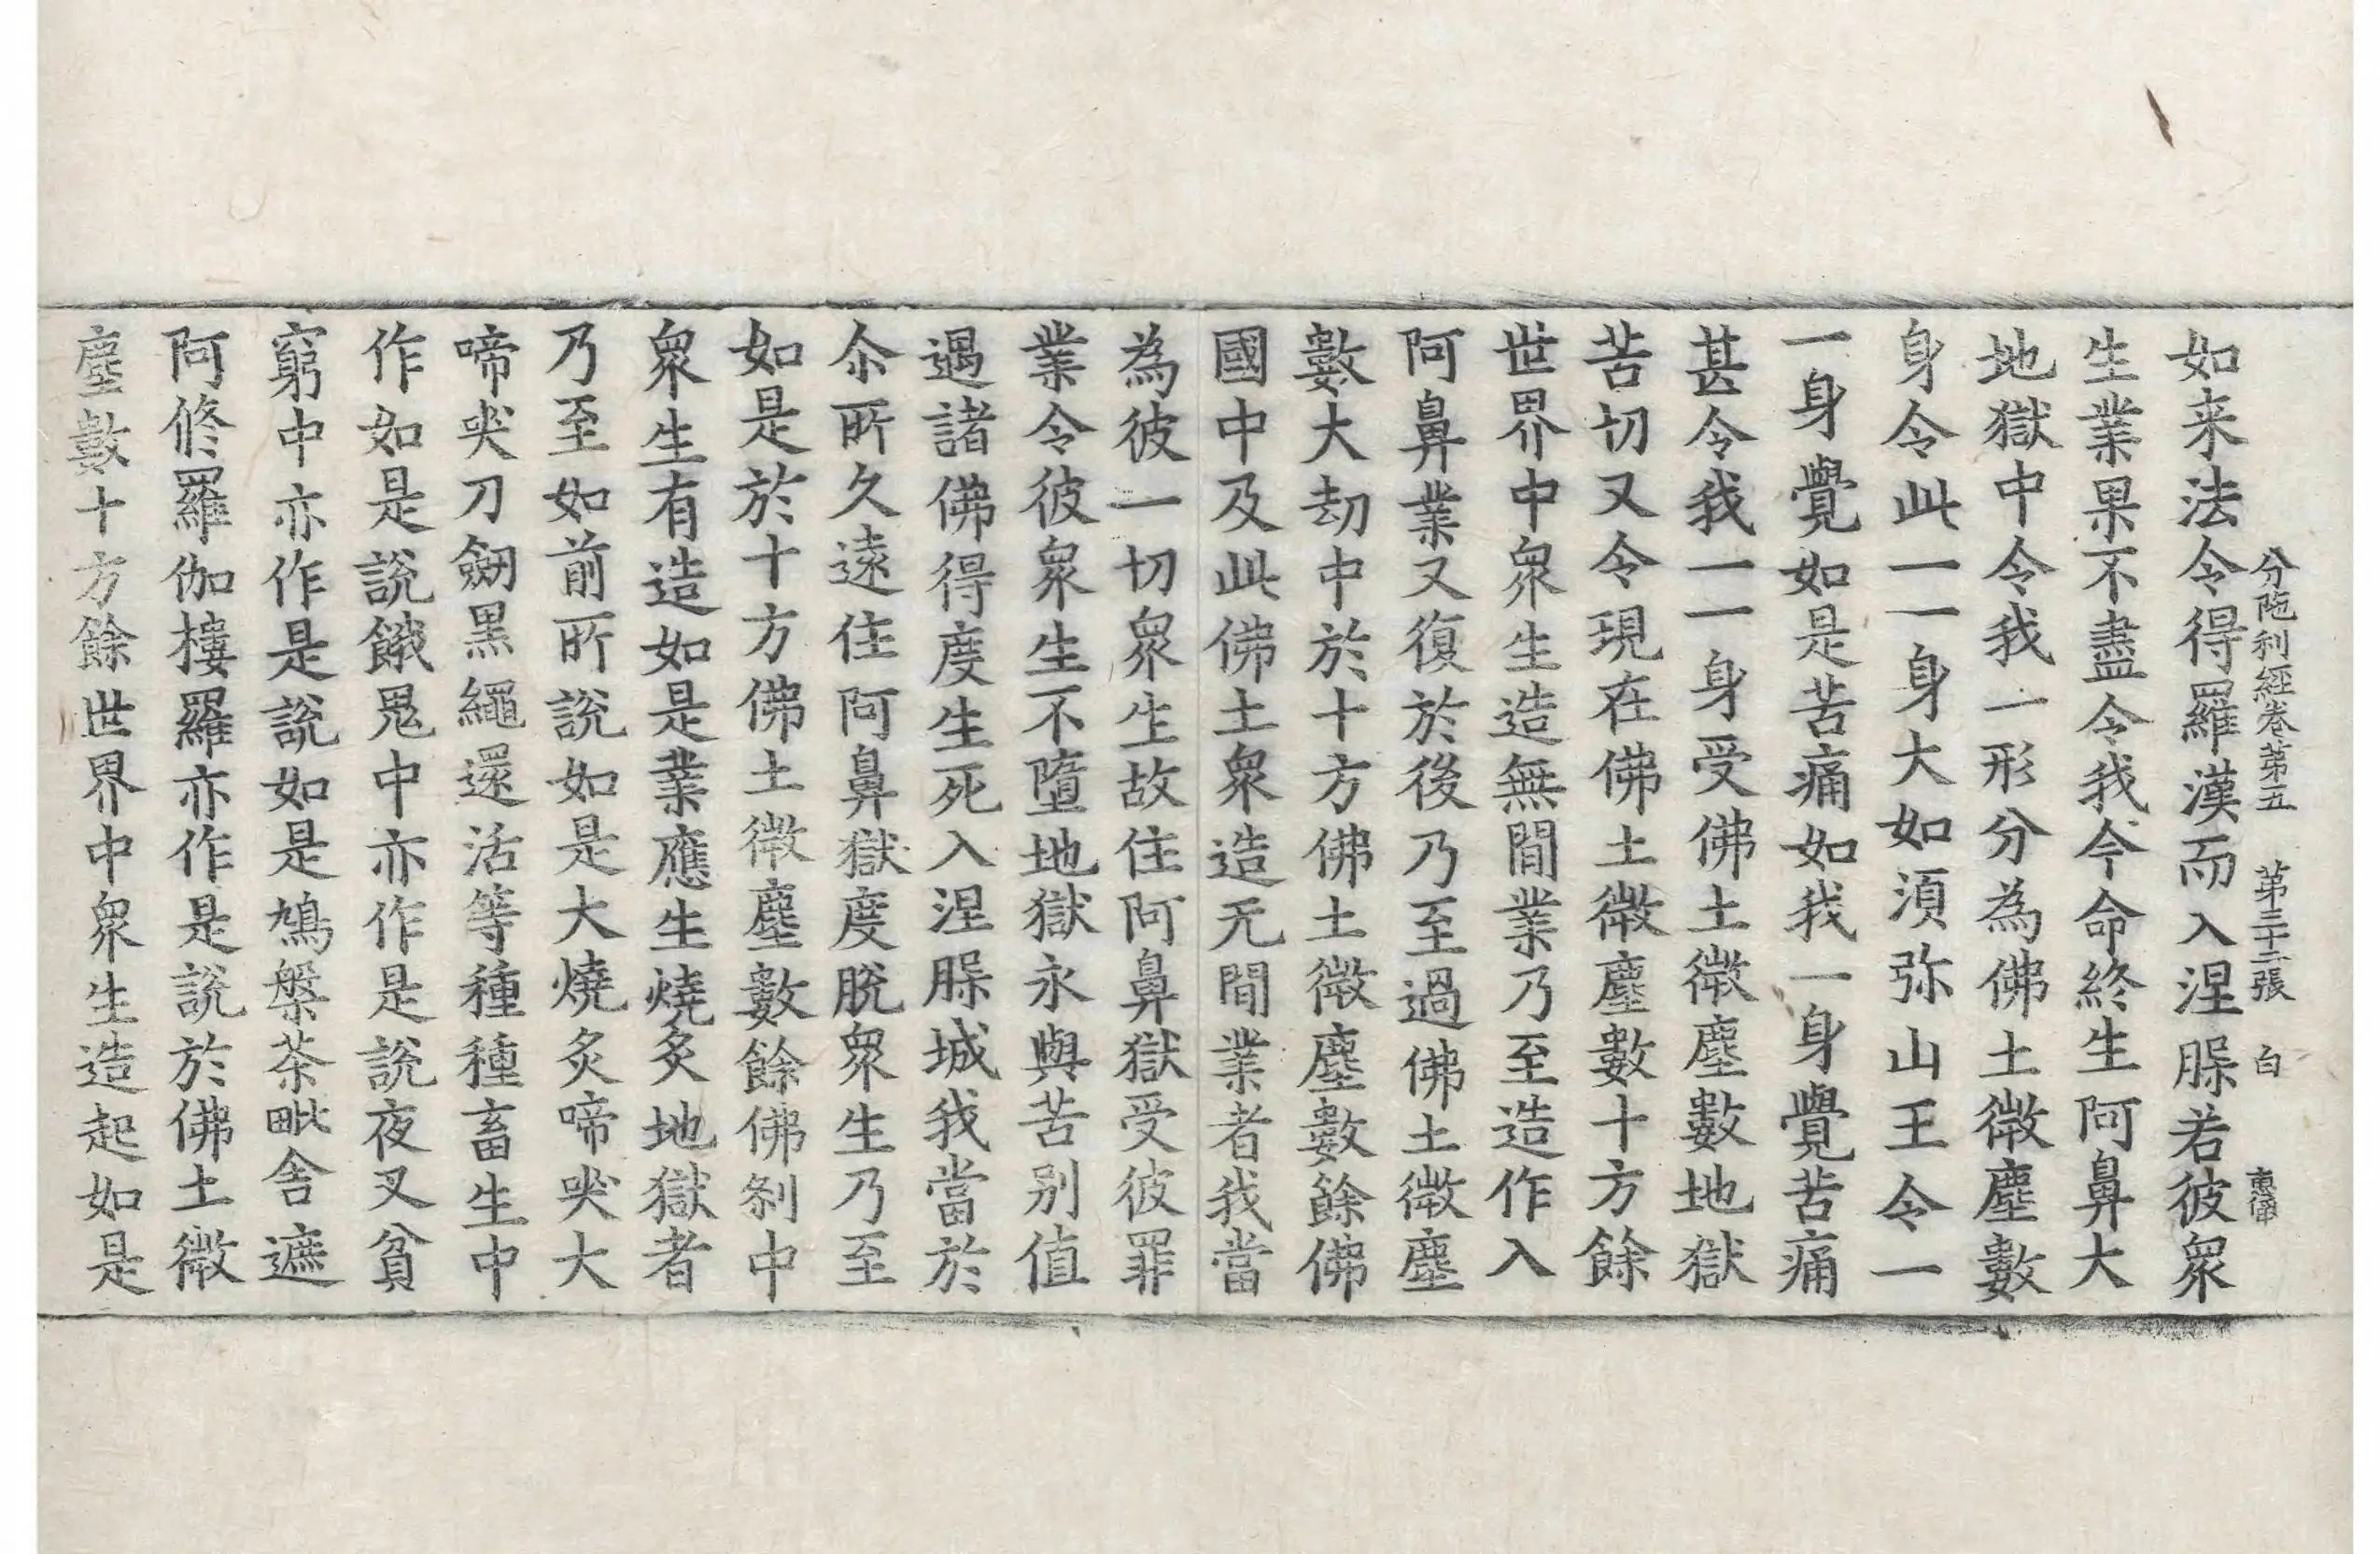 分陁利經卷第五　第三十二張　白
如来法令得羅漢而入涅脲若彼衆
生業果不盡令我今命終生阿鼻大
地獄中令我一形分為佛土微塵數
身令此一一身大如湏弥山王令一
一身覺如是苦痛如我一身覺苦痛
甚令我一一身受佛土微塵數地獄
苦切又令現在佛土微塵數十方餘
世界中衆生造無間業乃至造作入
阿鼻業又復於後乃至過佛土微塵
數大劫中於十方佛土微塵數餘佛
國中及此佛土衆造无間業者我當
為彼一切衆生故住阿鼻獄受彼罪
業令彼衆生不墮地獄永與苦别值
遇諸佛得度生死入涅脲城我當於
尒所久遠住阿鼻獄度脫衆生乃至
如是於十方佛土微塵數餘佛刹中
衆生有造如是業應生燒炙地獄者
乃至如前所說如是大燒炙啼哭大
啼哭刀劒黑繩還活等種種畜生中
作如是說餓鬼中亦作是說夜叉貧
窮中亦作是說如是鳩槃茶毗舍遮
阿修羅伽樓羅亦作是說於佛土微
塵數十方餘世界中衆生造起如是